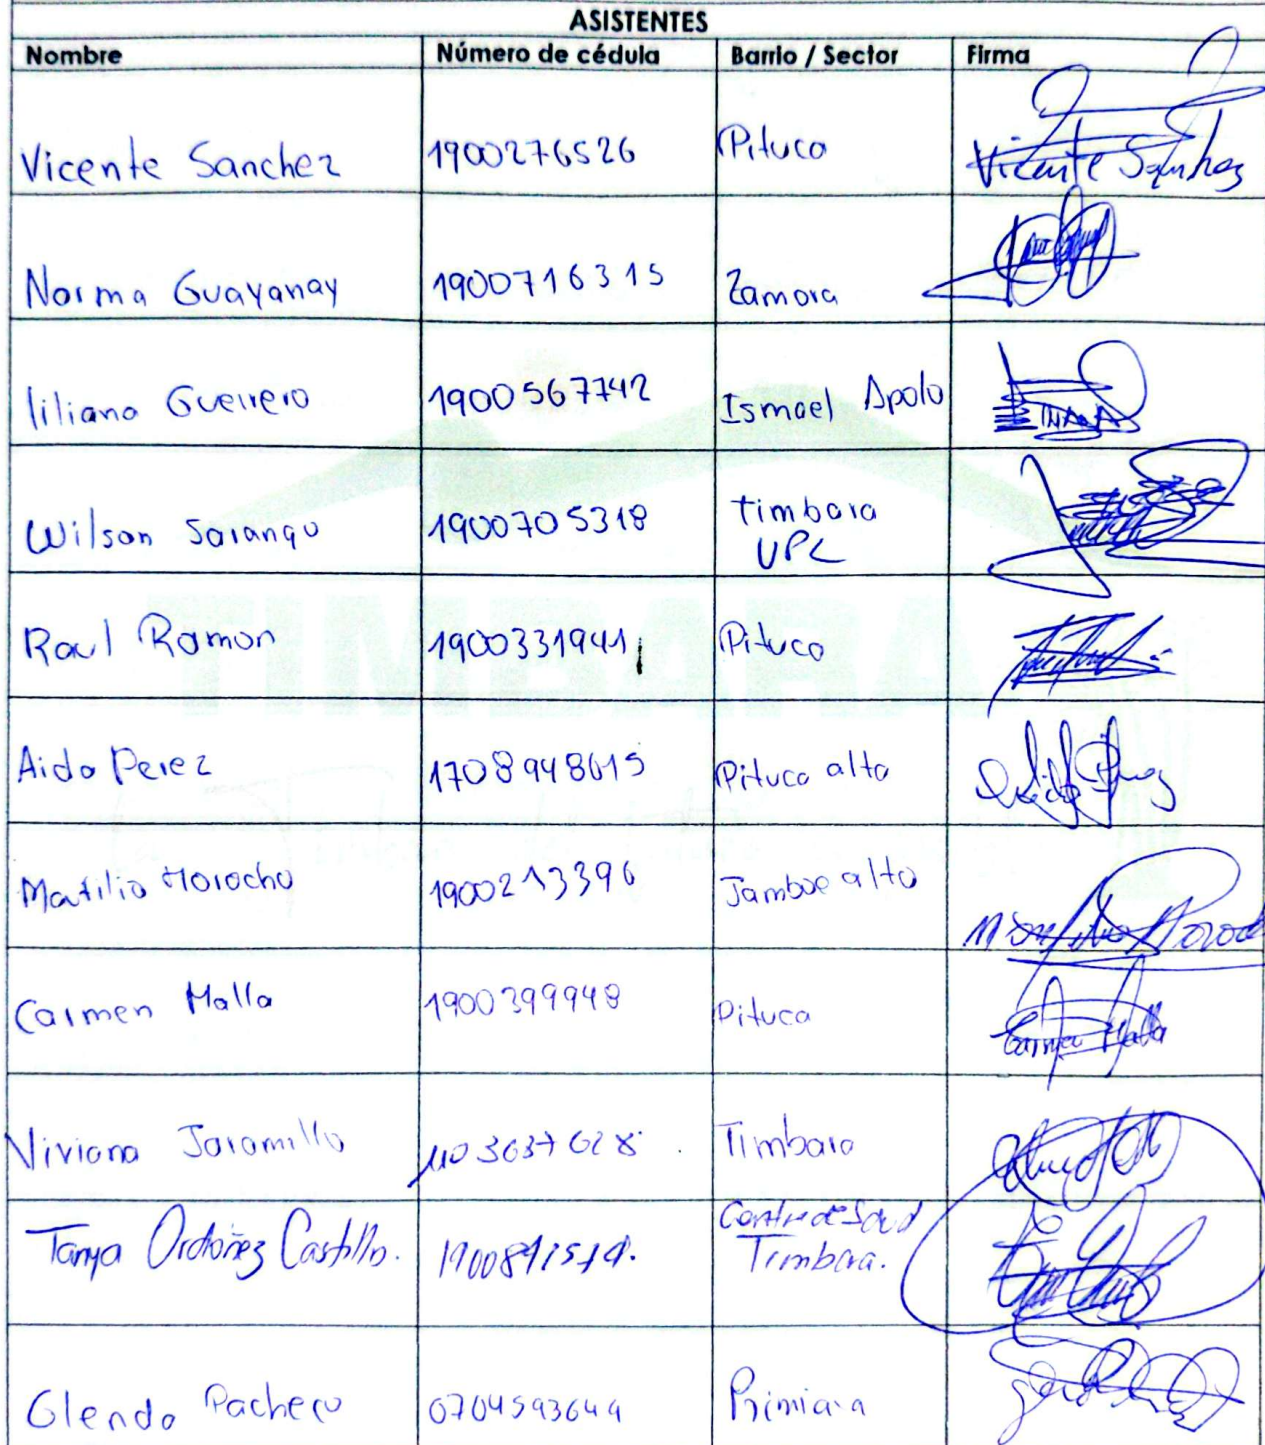 ASISTENTES
Nombre Número de cédula Barrio / Sector Firma
Vicente Sanchez 1900276526 Pituca Vicente Sanchez
Norma Guayanay 1900716315 Zamora
liliana Guerrero 1900567742 Ismael Apolo
Wilson Sarango 1900705318 timbara
UPC
Raul Ramon 1900331941 Pituca
Aida Perez 1708948615 Pituca alto
Matilio Morocho 1900213396 Jamboe alto
Carmen Malla 1900399948 Pituca Carmen Malla
Viviana Jaramillo 1103637628 Timbara
Centro de Salud
Tanya Ordoñez Castillo. Timbara.
Glenda Pacheco 0704593649
TIMBARA